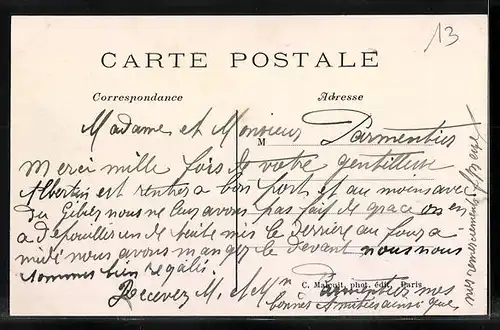 13
CARTE POSTALE
Correspondance
Adresse
M
Madame et Monsieur Parmentier
Merci mille fois de votre gentillesse
Albertin est rentré a bon port et au moins avec
du Gibier nous ne leur avons pas fait de grace on en
a depouiller un de suite mis le derrière au four a
midi nous avons manger le devant nous nous
sommes bien régalés.
Recevez M. et Mm Parmentier nos
bonnes amitiées ainsi que
nos remerciements
C. Malcuit, phot. édit., Paris